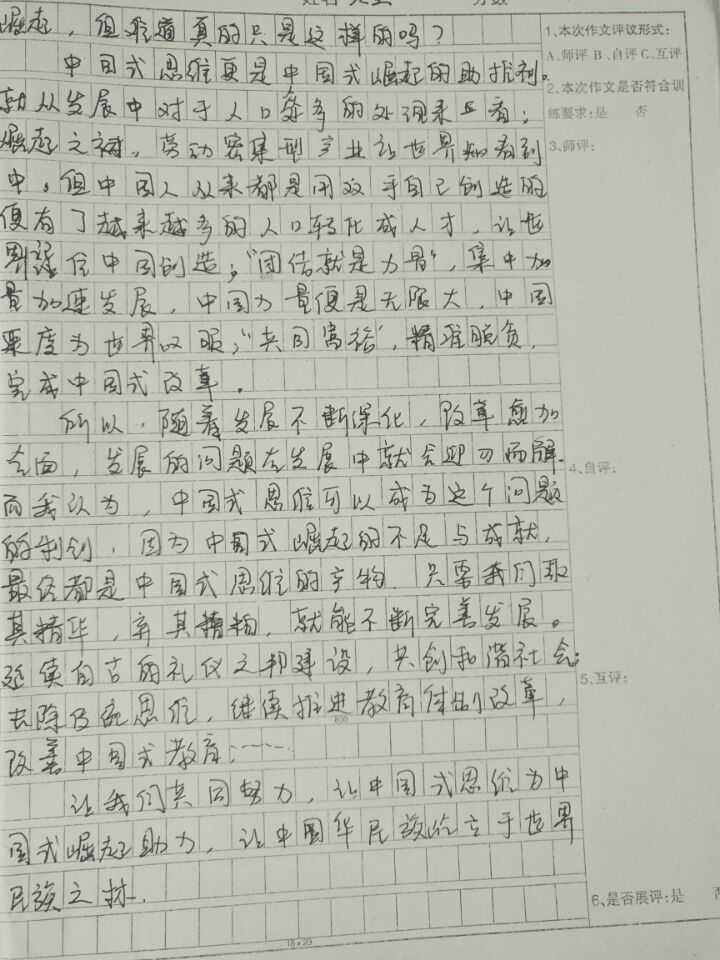 崛起，但难道真的只是这样的吗？
中国式思维更是中国式崛起的助推剂。
就从发展中对于人口众多的处理来上看；
崛起之初，劳动密集型产业让世界都看到
中。但中国人从来都是用双手自己创造的
便有了越来越多的人口转化成人才，让世
界记住中国创造；“团结就是力量”，集中加
量加速发展，中国力量便是无限大，中国
速度为世界叹服；“共同富裕”，精准脱贫，
完成中国式改革。
所以，随着发展不断深化，改革愈加
全面，发展的问题在发展中就会迎刃而解.
而我认为，中国式思维可以成为这个问题
的，因为中国式崛起的不足与成就，
最终都是中国式思维的产物．只要我们取
其精华，弃其糟粕，就能不断完善发展。
延续自古的礼仪之邦建设，共创和谐社会；
去除思维，继续推进教育体制改革，
改善中国式教育；……
让我们共同努力，让中国式思维为中
国式崛起助力，让中国华民族屹立于世界
民族之林．
1、本次作文评议形式：
A.师评 B．自评 C.互评
2、本次作文是否符合训
练要求：是 否
3、师评：
4、自评：
5、互评：
6、是否展评：是 否
18×20